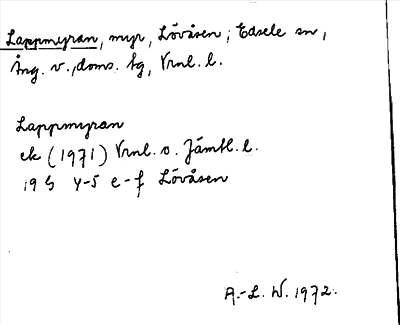 Lappmyran, myr, Lövåsen; Edsele sn,
Ång. v., doms. tg, Vrnl. l.
Lappmyran
ek (1971) Vrnl. o. Jämtl. l.
19 G 4-5 e-f Lövåsen
A.-L. W. 1972.